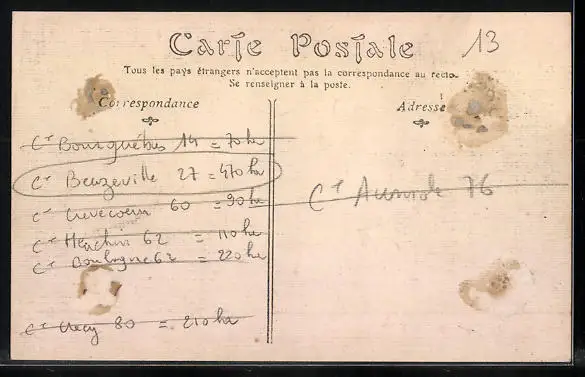 13
Carte Postale
Tous les pays étrangers n'acceptent pas la correspondance au recto.
Se renseigner à la poste.
Correspondance
Adresse
Ct Bourguébus 14 = 70 ha
Ct Beuzeville 27 = 470 ha
Ct Crèvecoeur 60 = 90 ha
Ct Aumale 76
Ct Heuchin 62 = 110 ha
Ct Boulogne 62 = 220 ha
Ct Crécy 80 = 210 ha